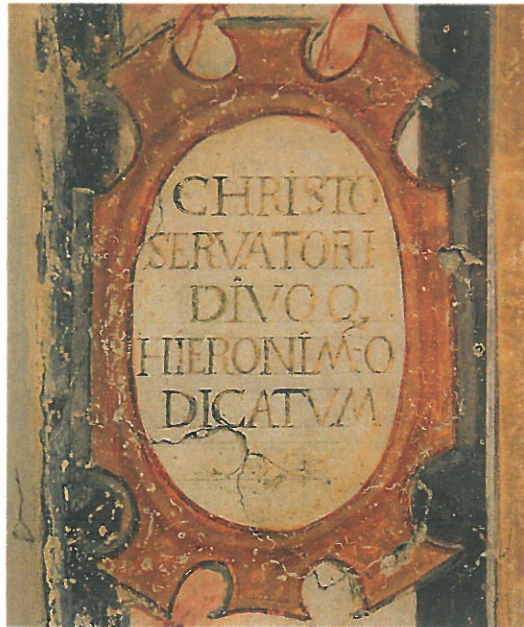 CHRISTO
SERVATORI
DIVOQ
HIERONIMO
DICATVM